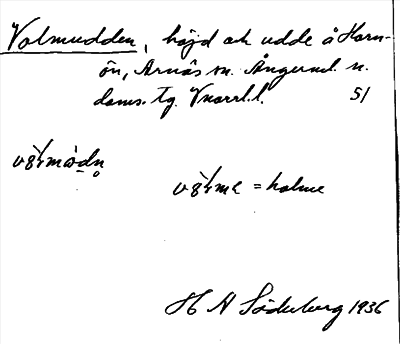 Valmudden, höjd och udde å Harn-
ön, Arnäs sn. Ångerml. n.
doms. Tg. Vnorrl. l. 51
valme = halme
H A Söderberg 1936